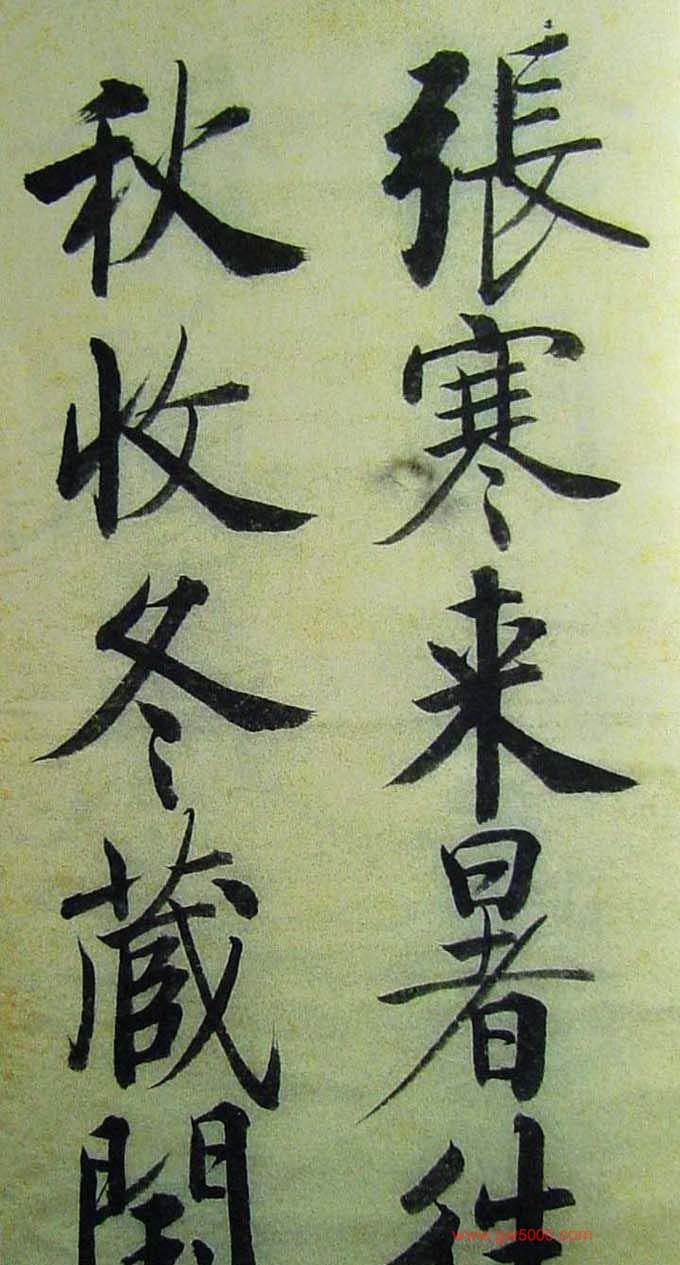 張寒来暑往
秋收冬蔵閏
www.gw5000.com